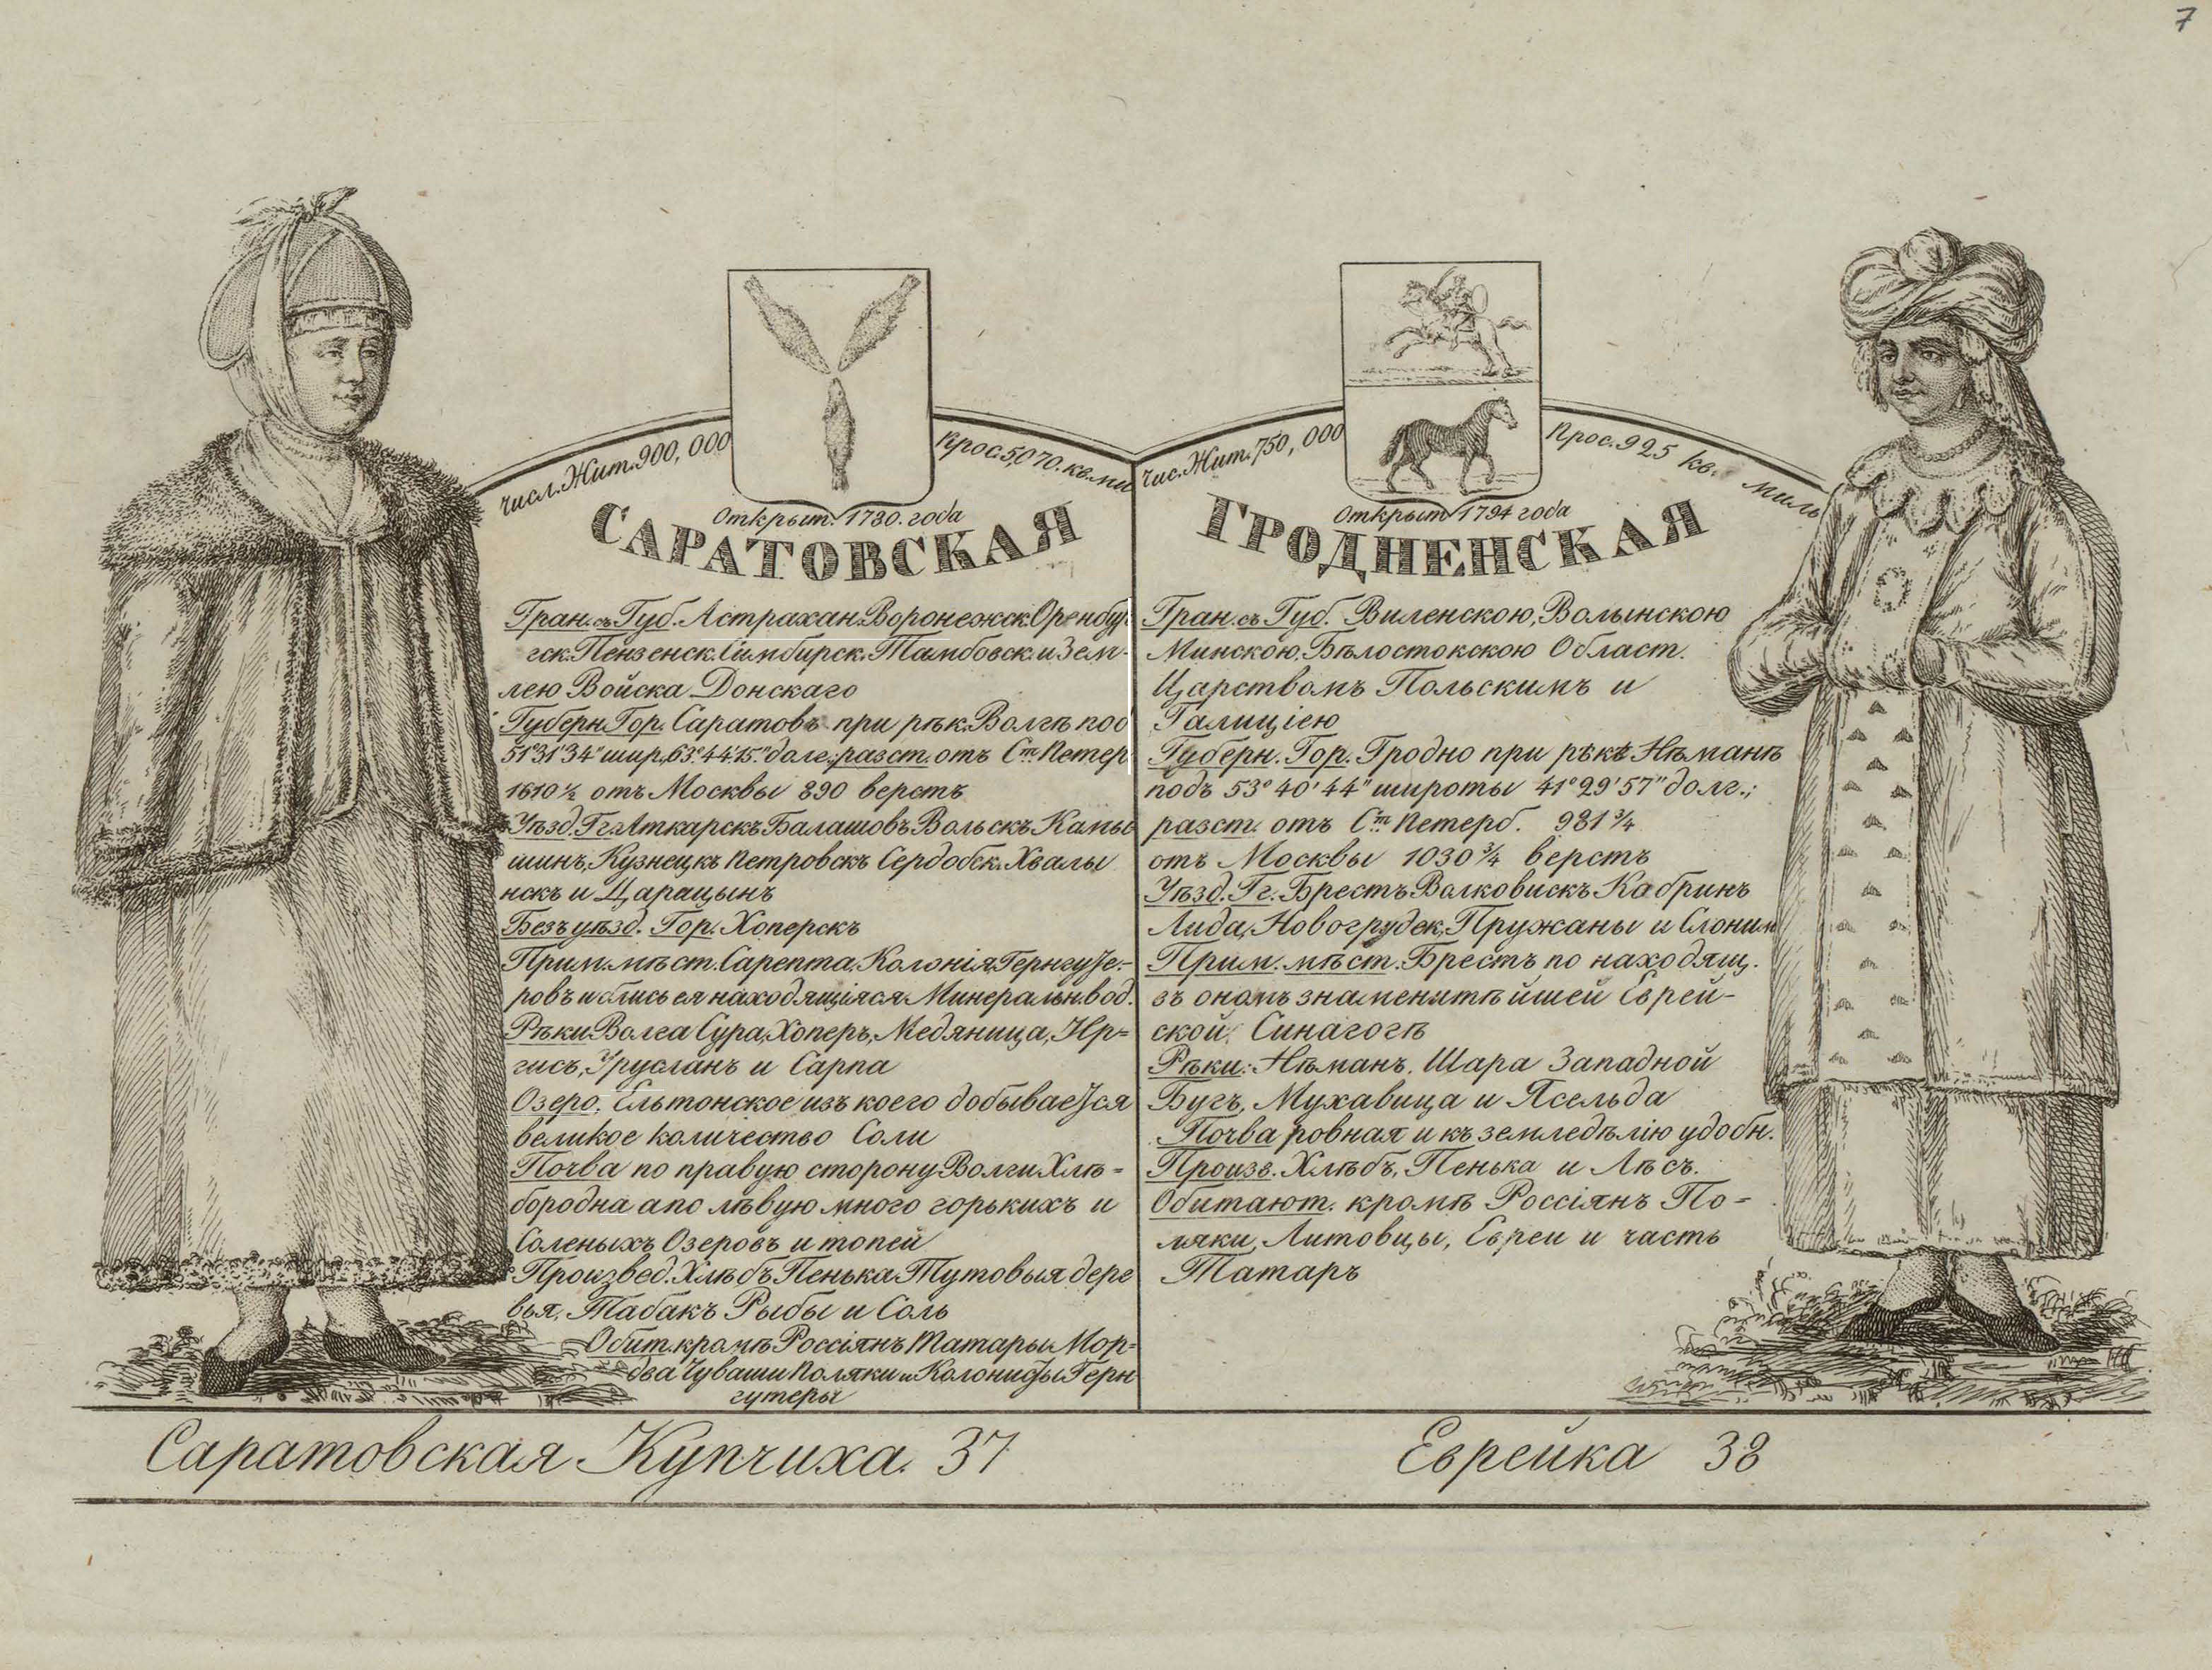 7
числ. Жит. 900,000
Прос. 5,070. кв. ми
Открыт. 1780. года
САРАТОВСКАЯ
Гран. съ Губ. Астрахан. Воронежск. Оренбур
гск. Пензенск. Симбирск. Тамбовск. и Зем-
лею Войска Донскаго
Губерн. Гор. Саратовъ при рѣк. Волгѣ под
51°31'34" шир., 63°44'15" долг.; разст. отъ Ст. Петер
1610 ½ отъ Москвы 890 верстъ
Уѣзд. Гг. Аткарскъ Балашовъ Вольскъ Камы
шинъ, Кузнецкъ Петровскъ Сердобск. Хвалы
нскъ и Царацынъ
Безъ уѣзд. Гор. Хоперскъ
Прим. мѣст. Сарепта. Колонія Гернгуте-
ровъ и близь ея находящіяся Минеральн. вод.
Рѣки Волга Сура, Хоперъ, Медяница, Ир=
гисъ, Урусланъ и Сарпа
Озеро. Ельтонское изъ коего добывается
великое количество Соли
Почва по правую сторону Волги Хлѣ=
бородна а по лѣвую много горькихъ и
Соленыхъ Озеровъ и топей
Произвед. Хлѣбъ Пенька Тутовыя дере
вья, Табакъ Рыбы и Соль
Обит. кромѣ Россіянъ Татары Мор=
два Чуваши Поляки и Колонисты Герн
гутеры
Саратовская Купчиха. 37
Чис. Жит. 750,000
Прос. 925 кв. миль
Открыт 1794 года
ГРОДНЕНСКАЯ
Гран. съ Губ. Виленскою, Волынскою
Минскою. Бѣлостокскою Област.
Царствомъ Польскимъ и
Галиціею
Губерн. Гор. Гродно при рѣкѣ Нѣманѣ
подъ 53°40'44" широты 41°29'57" долг.;
разст. отъ Ст. Петерб. 981 ¾
отъ Москвы 1030 ¾ верстъ
Уѣзд. Гг. Брестъ Волковискъ Кабринъ
Лида, Новогрудек, Пружаны и Слоним
Прим. мѣст. Брестъ по находящ.
въ ономъ знаменитѣйшей Еврей-
ской Синагогѣ
Рѣки: Нѣманъ. Шара Западной
Бугъ, Мухавица и Ясельда
Почва ровная и къ земледѣлію удобн.
Произв. Хлѣбъ, Пенька и Лѣсъ.
Обитают. кромѣ Россіянъ По=
ляки, Литовцы, Евреи и часть
Татаръ
Еврейка 38